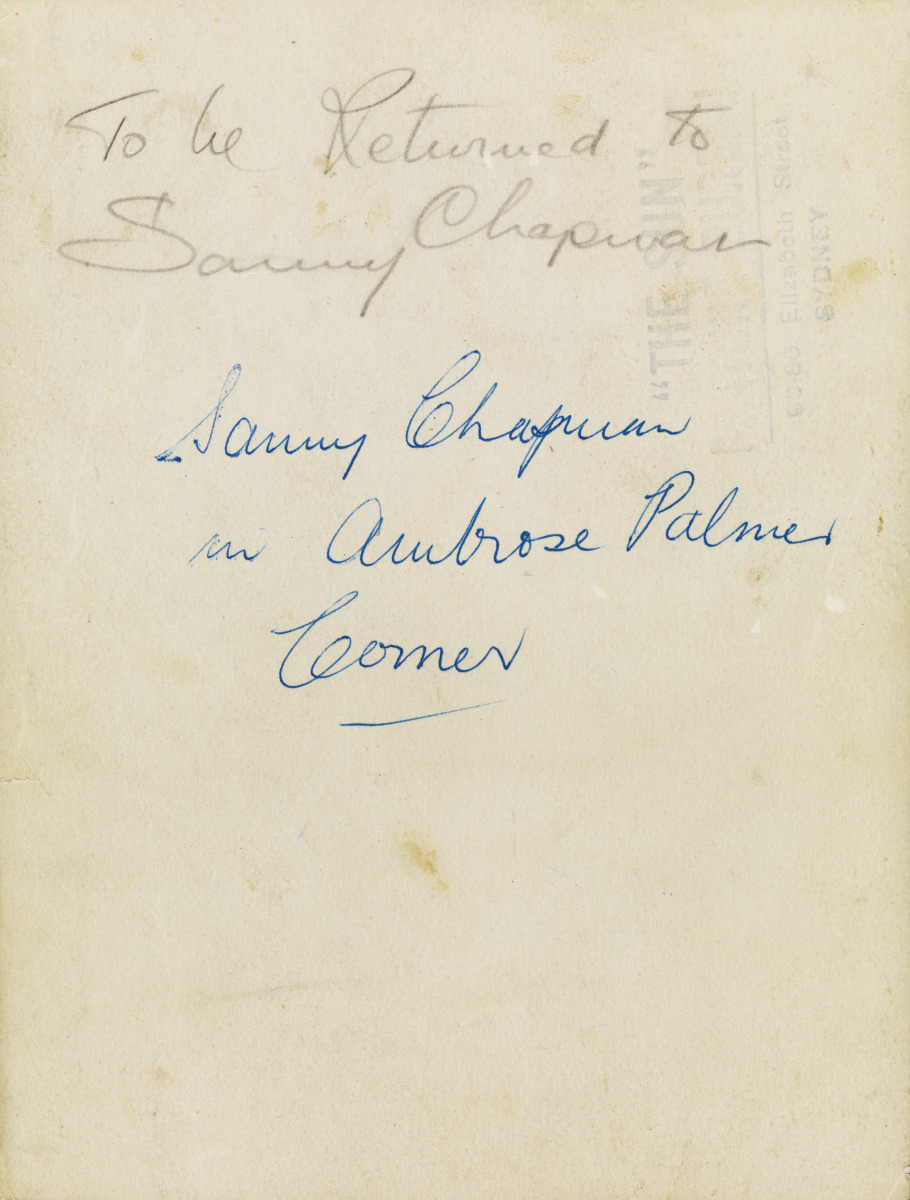 To be Returned to
Sammy Chapman
Sammy Chapman
in Ambrose Palmer
Corner
"THE SUN"
60-66 Elizabeth Street
SYDNEY